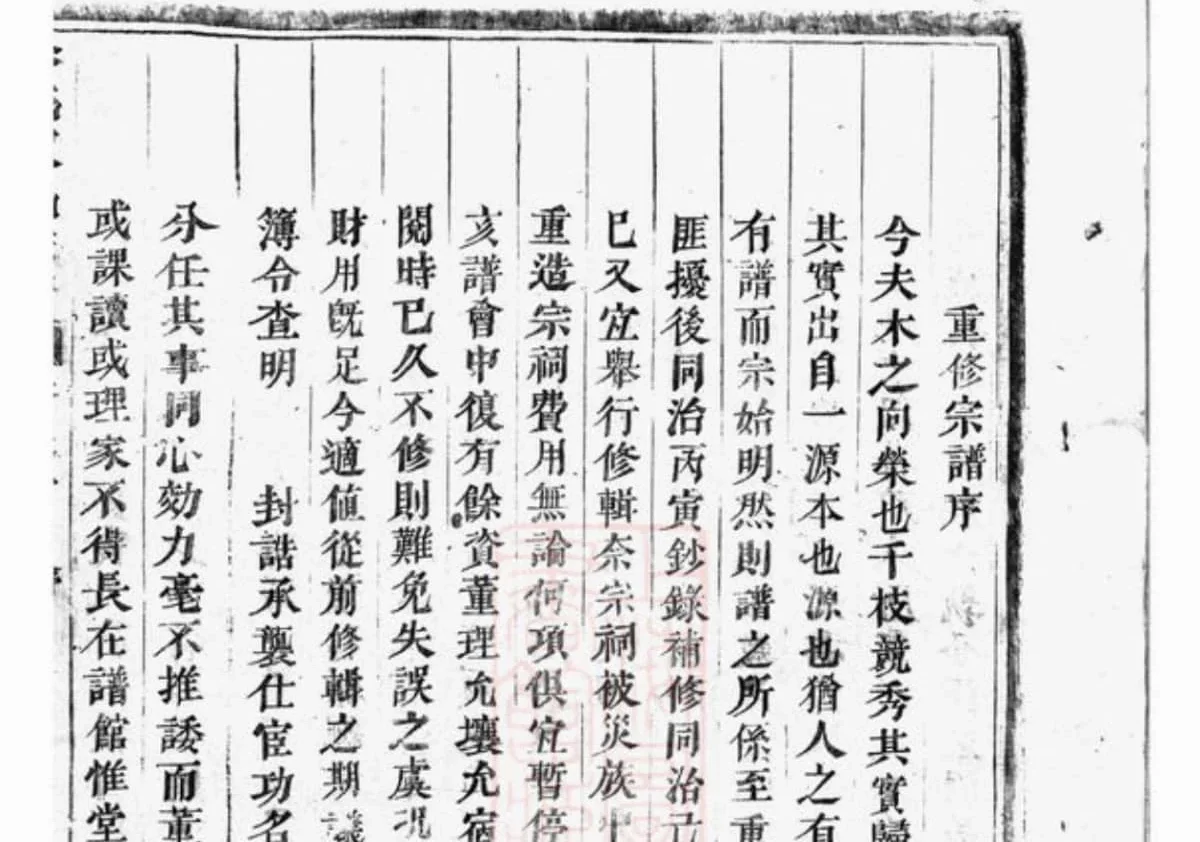 重修宗譜序
今夫木之向榮也千枝競秀其實歸
其實出自一源本也源也猶人之有
有譜而宗始明然則譜之所係至重
匪擾後同治丙寅鈔錄補修同治己
巳又宜舉行修輯奈宗祠被災族中
重造宗祠費用無論何項俱宜暫停
亥譜會中復有餘資董理允壤允宿
閱時已久不修則難免失誤之虞況
財用既足今適值從前修輯之期議
簿令查明 封誥承襲仕宦功名
分任其事同心効力毫不推諉而董
或課讀或理家不得長在譜館惟堂